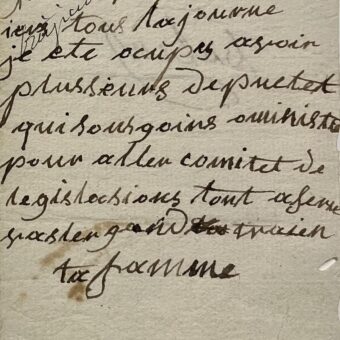 tous lajourne
je ete ocupy avoir
plusseurs deputet
qui sousgoins o ministe
pour aller comitet de
legislasions tout afere
vaster grand traien
ta famme